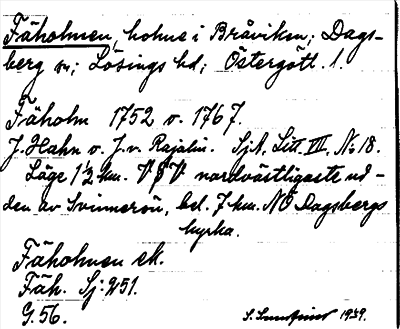 Fäholmen, holme i Bråviken; Dags-
berg sn; Lösings hd; Östergötl. l.
Fäholm 1752 o. 1767.
J. Hahn o. J. v. Rajalin. Sj.A. Litt. III, No 18.
Läge 1 1/2 km. V g V nordvästligaste ud-
den av Svinnerön, bel. 7 km. NO Dagsbergs
kyrka.
Fäholmen ek.
Fäh. Sj: 251.
G. 56.
S. 1939.